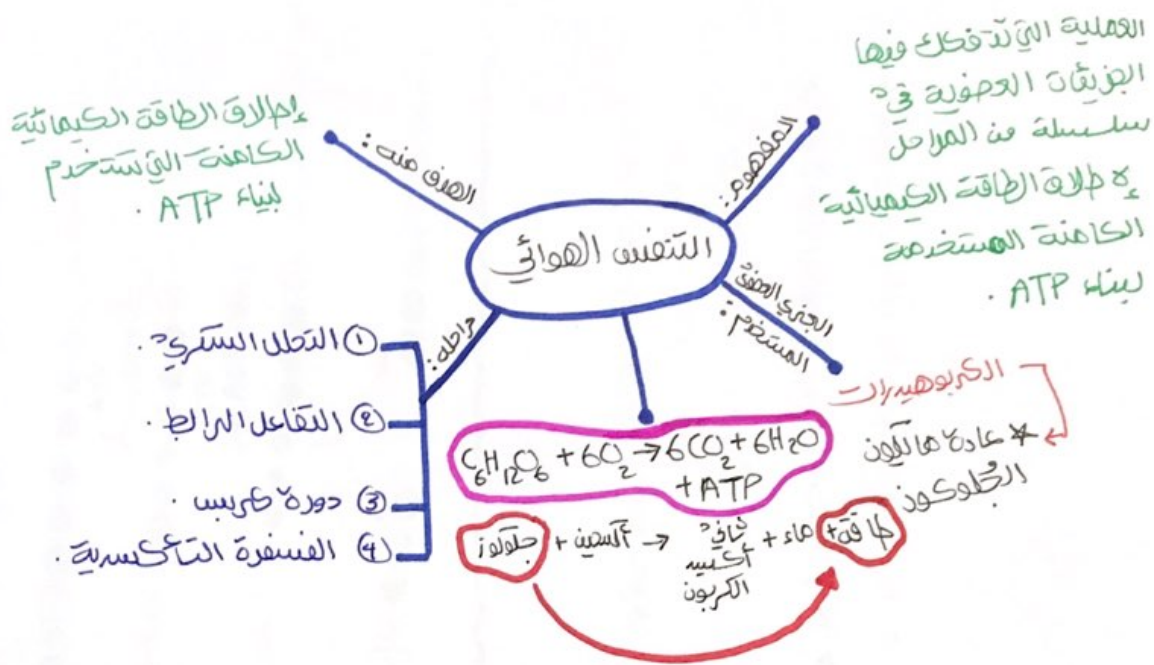 التنفس الهوائي
المفهوم:
العملية التي تتفكك فيها
الجزيئات العضوية في
سلسلة من المراحل
لإطلاق الطاقة الكيميائية
الكامنة المستخدمة
لبناء ATP.
الهدف منه:
إطلاق الطاقة الكيمائية
الكامنة التي تستخدم
لبناء ATP.
الجزيء العضوي
المستخدم:
الكربوهيدرات
* عادة ما يكون
الجُلوكوز
مراحله:
① التحلل السكري.
② التفاعل الرابط.
③ دورة كربس.
④ الفسفرة التأكسدية.
C₆H₁₂O₆ + 6O₂ → 6CO₂ + 6H₂O
+ ATP
جلوكوز + أكسجين → ثاني + ماء + طاقة
أكسيد
الكربون